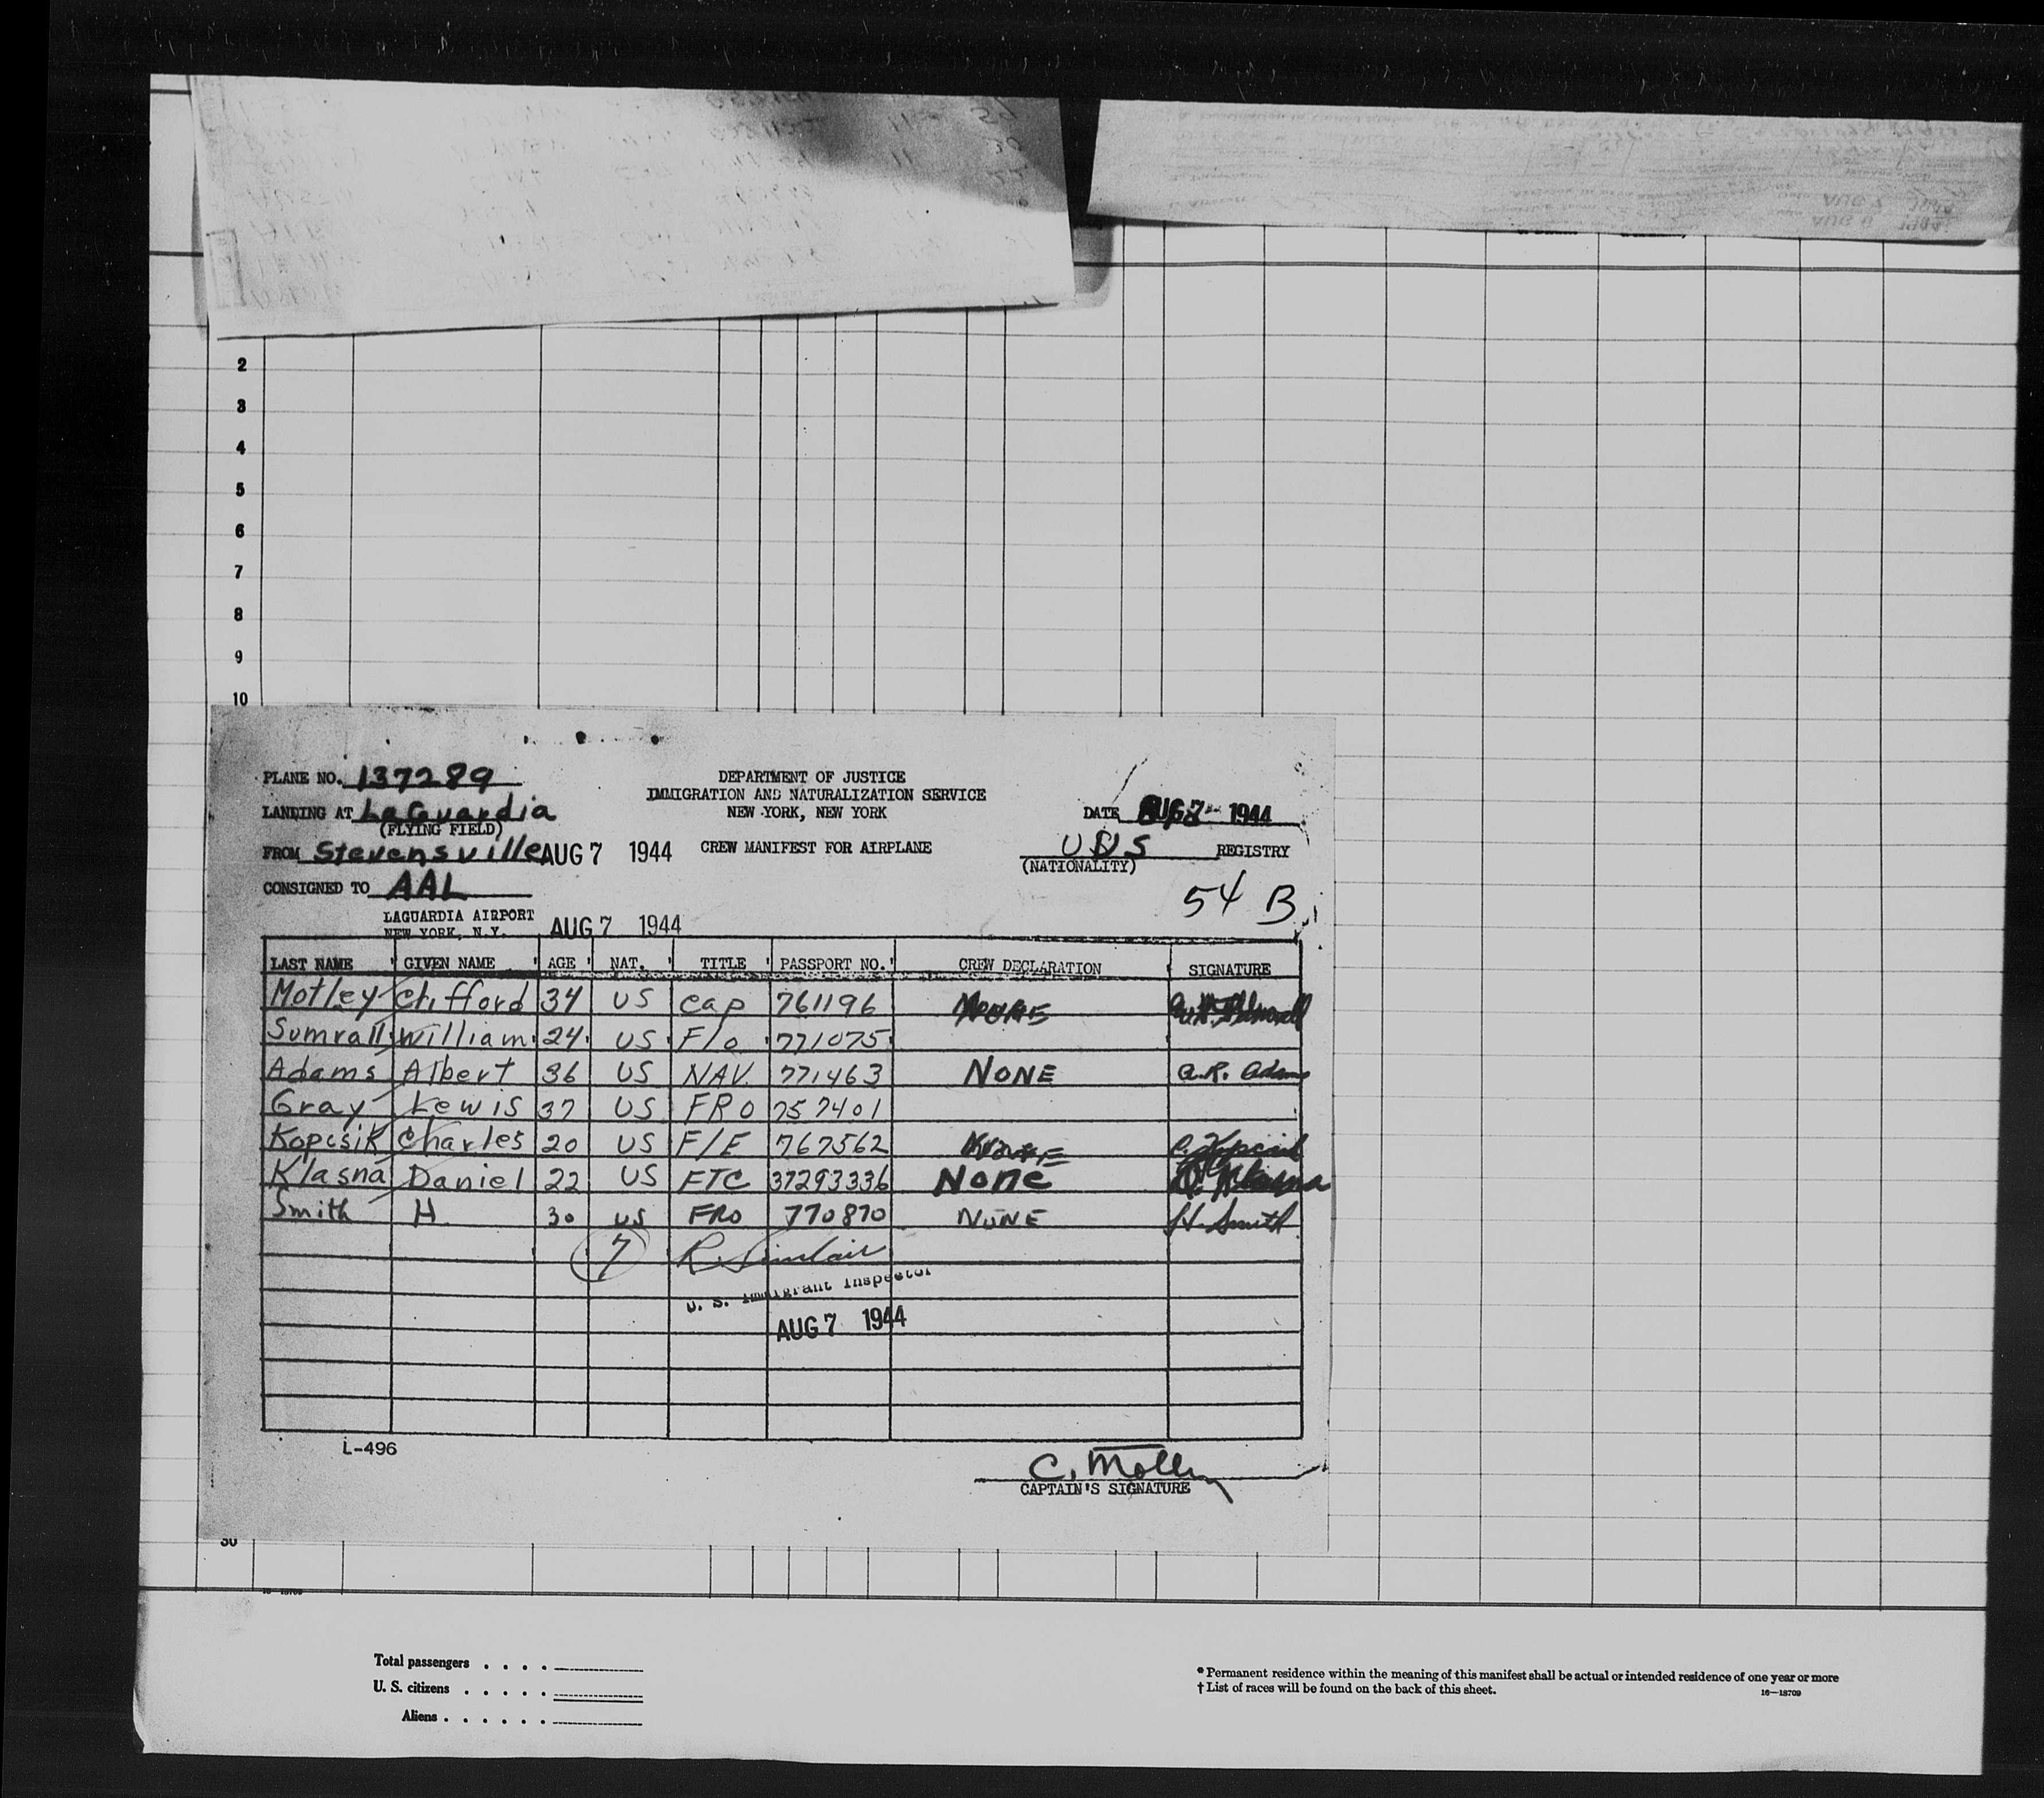 2
3
4
5
6
7
8
9
10
PLANE NO. 137289
DEPARTMENT OF JUSTICE
IMMIGRATION AND NATURALIZATION SERVICE
NEW YORK, NEW YORK
LANDING AT LaGuardia
(FLYING FIELD)
DATE 1944
FROM Stevensville AUG 7 1944
CREW MANIFEST FOR AIRPLANE
US REGISTRY
(NATIONALITY)
CONSIGNED TO AAL
54 B
LAGUARDIA AIRPORT
NEW YORK, N.Y.
AUG 7 1944
LAST NAME GIVEN NAME AGE NAT. TITLE PASSPORT NO. CREW DECLARATION SIGNATURE
Motley Clifford 34 US Cap 761196
Sumrall William 24 US F/o 771075
Adams Albert 36 US NAV. 771463 NONE A.R. Adams
Gray Lewis 37 US FRO 757401
Kopcsik Charles 20 US F/E 767562
Klasna Daniel 22 US FTC 37293336 None D. Klasna
Smith H. 30 US FRO 770870 NONE H. Smith
7 R. Sinclair
U. S. Immigrant Inspector
AUG 7 1944
L-496
C. Motley
CAPTAIN'S SIGNATURE
30
Total passengers . . . .
U. S. citizens . . . . .
Aliens . . . . . .
* Permanent residence within the meaning of this manifest shall be actual or intended residence of one year or more
† List of races will be found on the back of this sheet.
16—18709